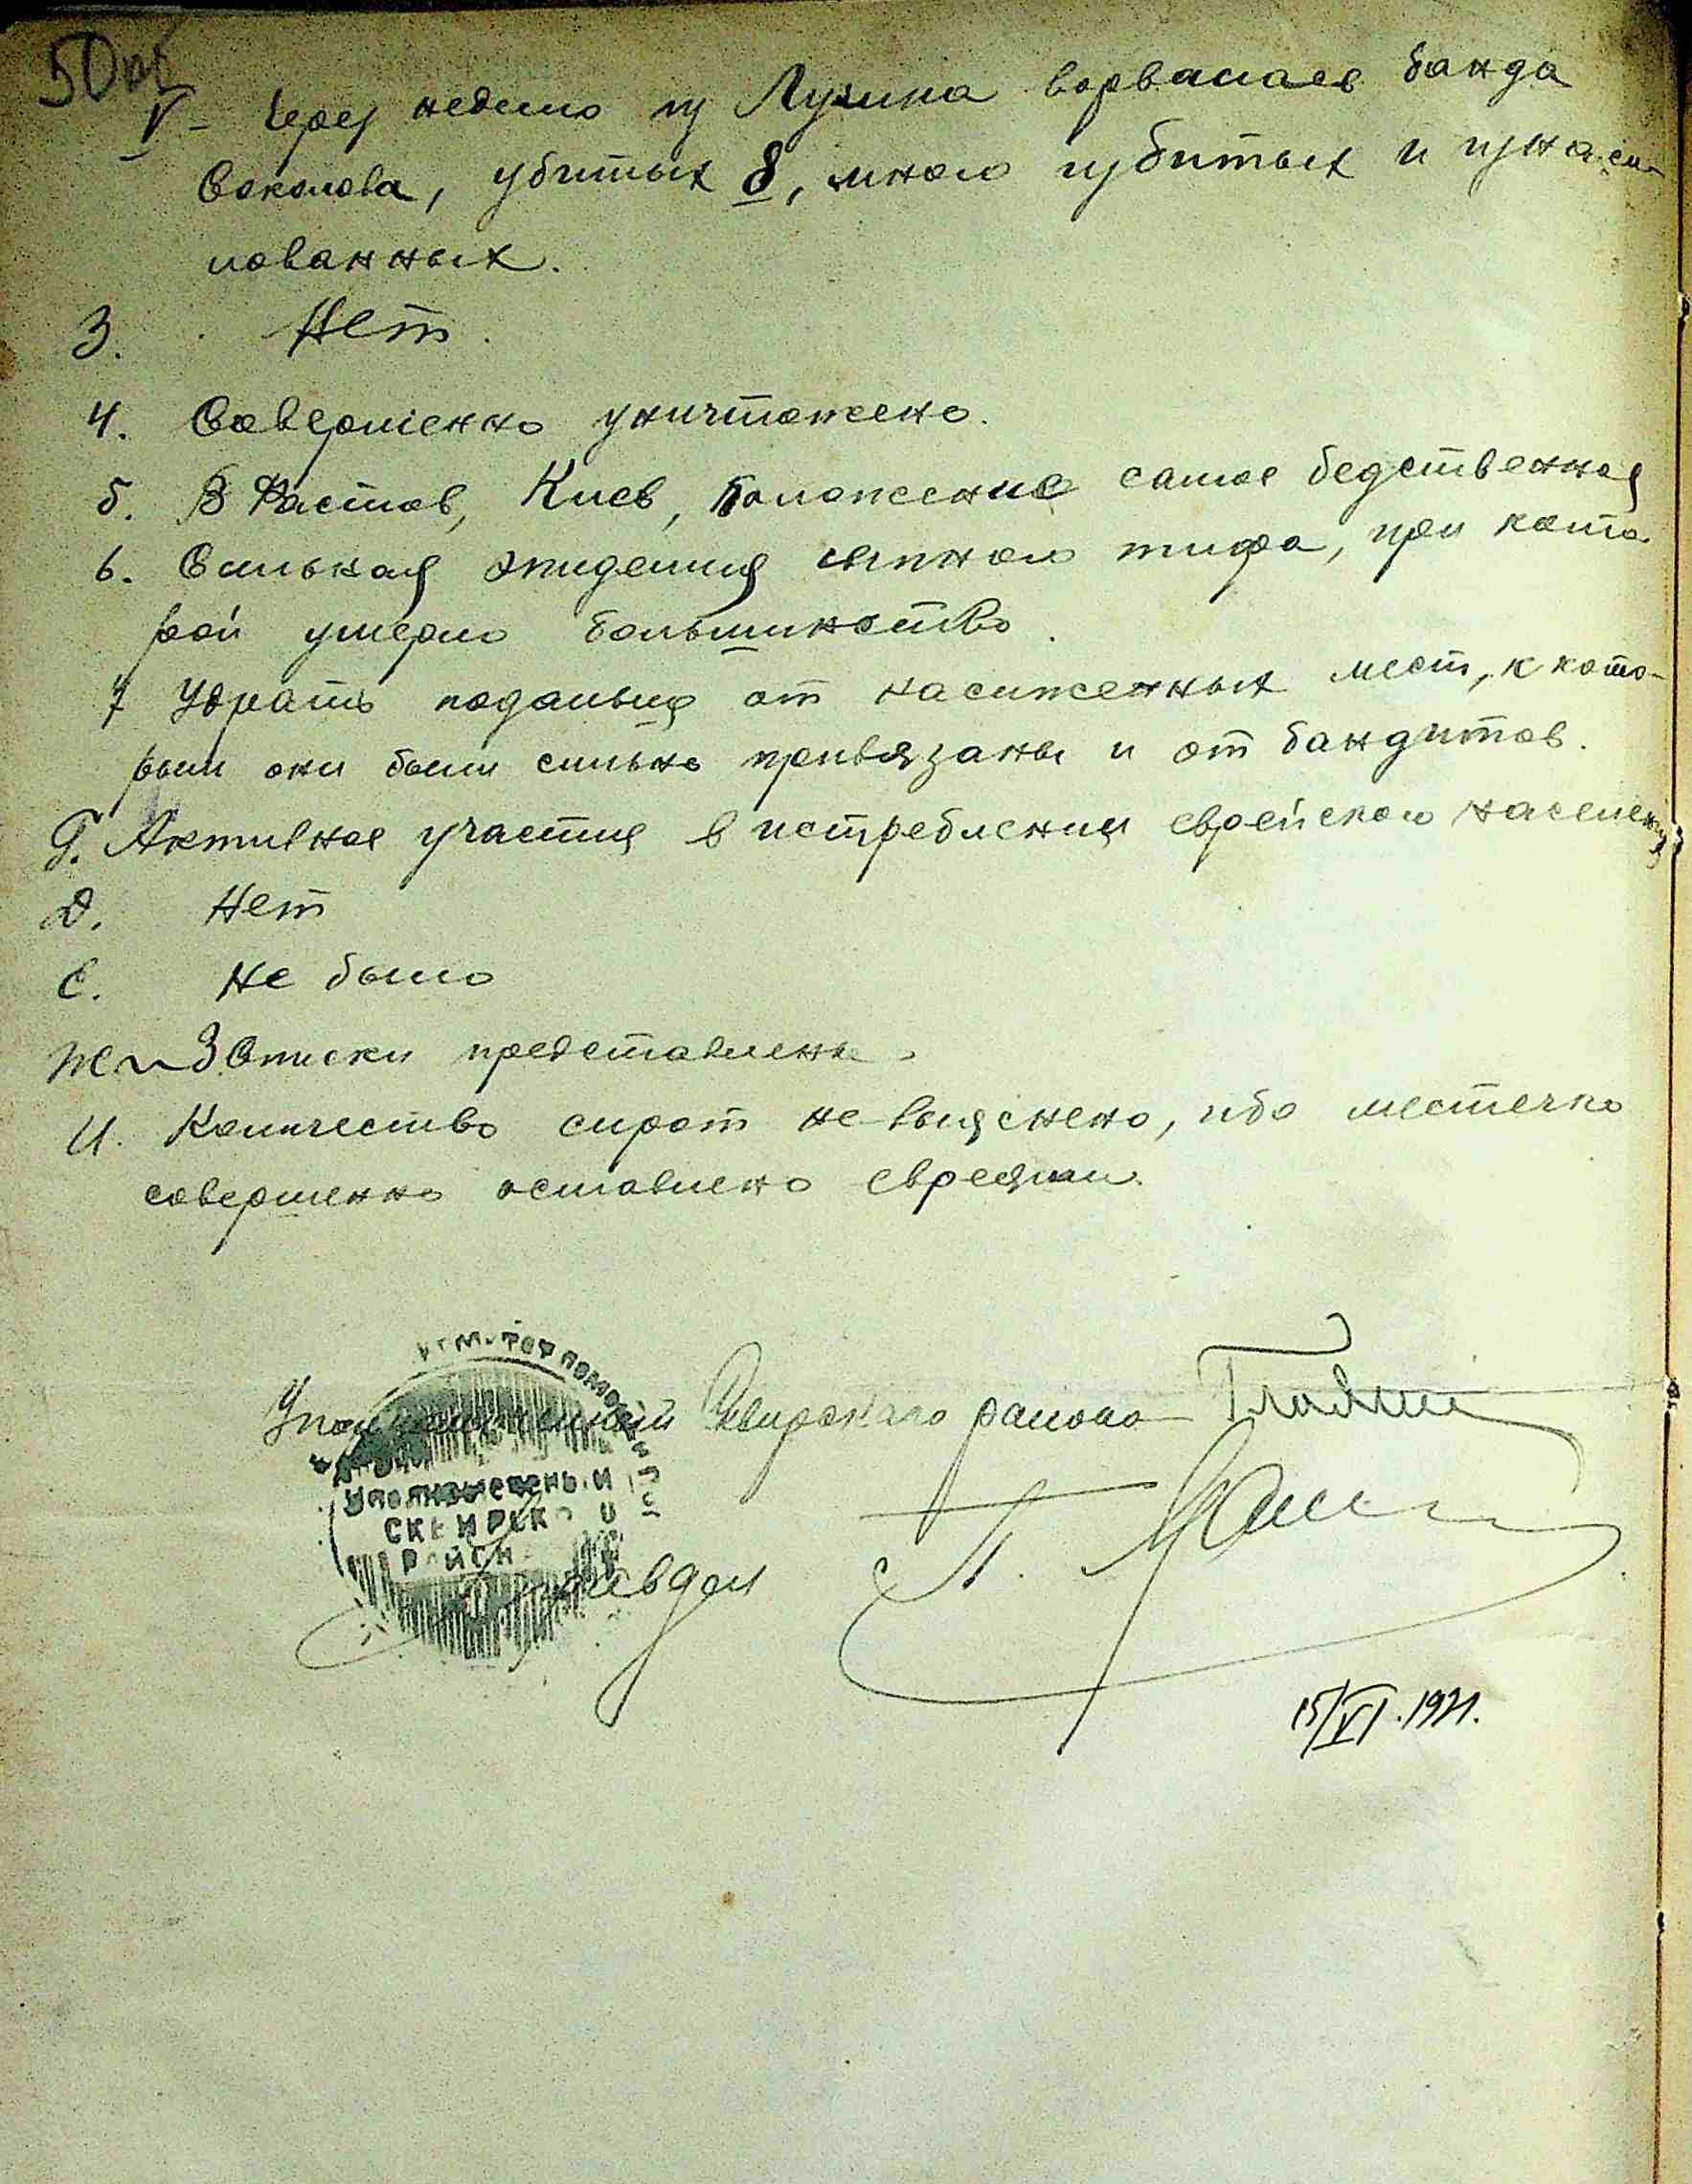 50об
V – Через неделю из Лучина ворвалась банда
Соколова, убитых 8, много избитых и изнаси-
лованных.
3. Нет.
4. Совершенно уничтожено.
5. В Фастов, Киев, положение самое бедственное
6. Сильная эпидемия сыпного тифа, при кото-
рой умерло большинство.
7 Удрать подальше от насиженных мест, к кото-
рым они были сильно привязаны и от бандитов.
Г. Активное участие в истреблении еврейского населения
Д. Нет
Е. Не было
Ж и З Списки представлены.
И. Количество сирот не выяснено, ибо местечко
совершенно оставлено евреями.
Уполномоченный Сквирского района
Уполномоченный
СКВИРСКОГО
РАЙОНА
15/VI.1921.